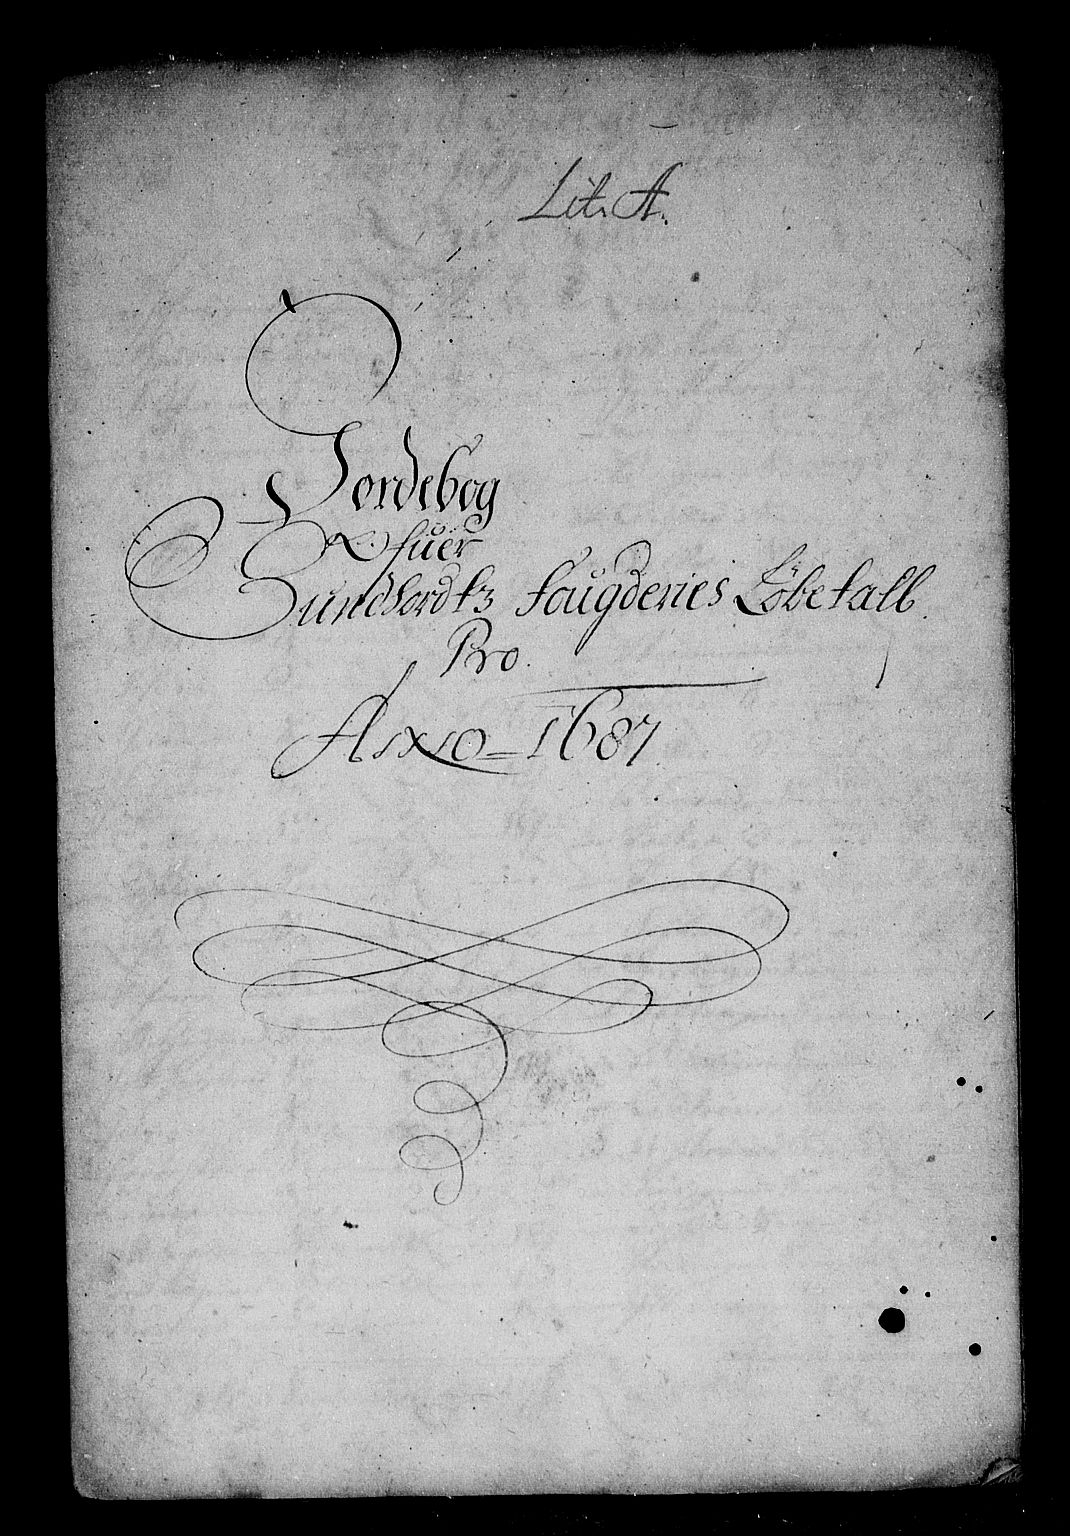 Lit. A.
Jordebog
Ofuer
Sundhordtz fougderies Löbetall.
Pro.
Anno = 1687